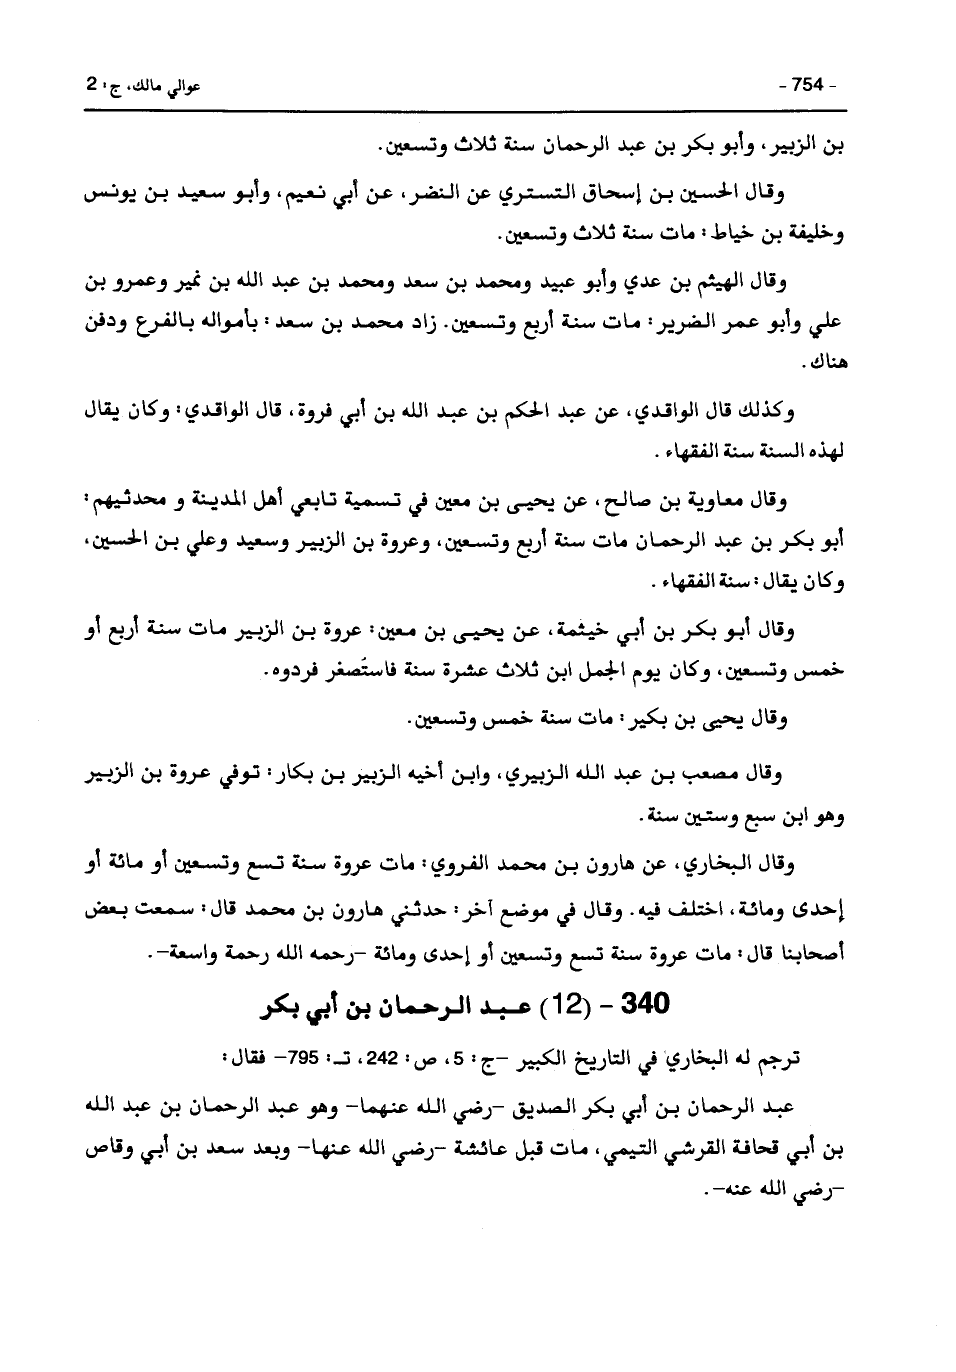 - 754 -
عوالي مالك، ج: 2
بن الزبير، وأبو بكر بن عبد الرحمان سنة ثلاث وتسعين.
وقال الحسين بن إسحاق التستري عن النضر، عن أبي نعيم، وأبو سعيد بن يونس
وخليفة بن خياط: مات سنة ثلاث وتسعين.
وقال الهيثم بن عدي وأبو عبيد ومحمد بن سعد ومحمد بن عبد الله بن نمير وعمرو بن
علي وأبو عمر الضرير: مات سنة أربع وتسعين. زاد محمد بن سعد: بأمواله بالفرع ودفن
هناك.
وكذلك قال الواقدي، عن عبد الحكم بن عبد الله بن أبي فروة، قال الواقدي: وكان يقال
لهذه السنة سنة الفقهاء.
وقال معاوية بن صالح، عن يحيى بن معين في تسمية تابعي أهل المدينة و محدثيهم:
أبو بكر بن عبد الرحمان مات سنة أربع وتسعين، وعروة بن الزبير وسعيد وعلي بن الحسين،
وكان يقال: سنة الفقهاء.
وقال أبو بكر بن أبي خيثمة، عن يحيى بن معين: عروة بن الزبير مات سنة أربع أو
خمس وتسعين، وكان يوم الجمل ابن ثلاث عشرة سنة فاستُصغر فردوه.
وقال يحيى بن بكير: مات سنة خمس وتسعين.
وقال مصعب بن عبد الله الزبيري، وابن أخيه الزبير بن بكار: توفي عروة بن الزبير
وهو ابن سبع وستين سنة.
وقال البخاري، عن هارون بن محمد الفروي: مات عروة سنة تسع وتسعين أو مائة أو
إحدى ومائة، اختلف فيه. وقال في موضع آخر: حدثني هارون بن محمد قال: سمعت بعض
أصحابنا قال: مات عروة سنة تسع وتسعين أو إحدى ومائة -رحمه الله رحمة واسعة-.
340 - (12) عبد الرحمان بن أبي بكر
ترجم له البخاري في التاريخ الكبير -ج: 5، ص: 242، تـ: 795- فقال:
عبد الرحمان بن أبي بكر الصديق -رضي الله عنهما- وهو عبد الرحمان بن عبد الله
بن أبي قحافة القرشي التيمي، مات قبل عائشة -رضي الله عنها- وبعد سعد بن أبي وقاص
-رضي الله عنه-.